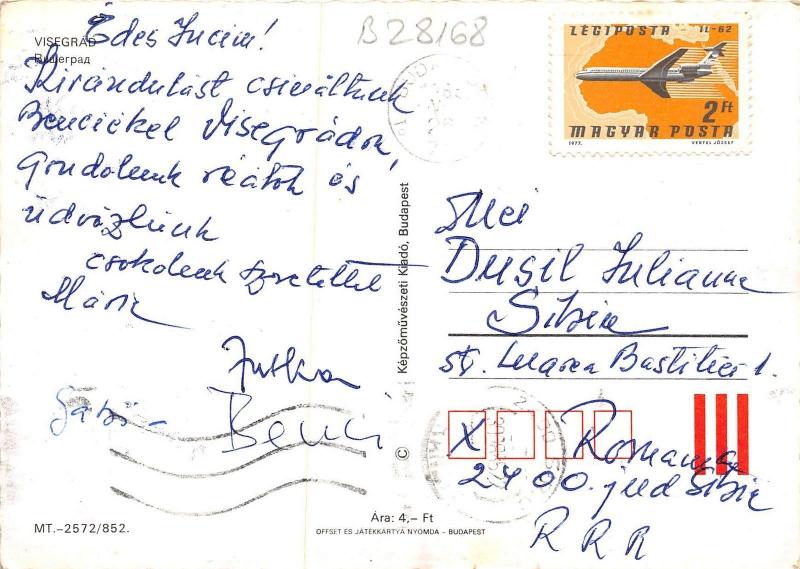 VISEGRÁD
Вишеград
Édes Jucim!
Kirándulást csináltunk
Benciékkel Visegrádon,
gondolunk reátok és
üdvözlünk
csokolunk szeretettel
Mária
Jutka
Gabi -
Benci
MT.-2572/852.
B28168
LÉGIPOSTA IL-62
2 Ft
MAGYAR POSTA
1977. VERTEL JÓZSEF
Képzőművészeti Kiadó, Budapest
©
Dusil Julianna
Sibiu
st. Lungă Bastiliei 1.
X
2400 jud Sibiu
R R R
Ára: 4,– Ft
OFFSET ÉS JÁTÉKKÁRTYA NYOMDA – BUDAPEST